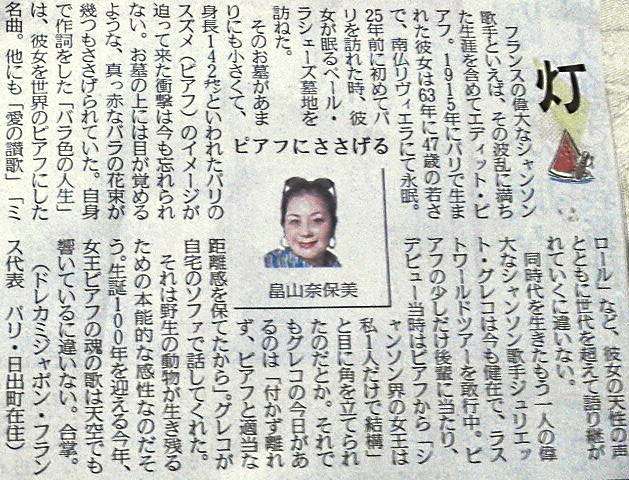 灯
ピアフにささげる
畠山奈保美
フランスの偉大なシャンソン
歌手といえば、その波乱に満ち
た生涯を含めてエディット・ピ
アフ。1915年にパリで生ま
れた彼女は63年に47歳の若さ
で、南仏リヴィエラにて永眠。
25年前に初めてパ
リを訪れた時、彼
女が眠るペール・
ラシェーズ墓地を
訪ねた。
そのお墓があま
りにも小さくて、
身長142㌢といわれたパリの
スズメ（ピアフ）のイメージが
迫って来た衝撃は今も忘れられ
ない。お墓の上には目が覚める
ような、真っ赤なバラの花束が
幾つもささげられていた。自身
で作詞をした「バラ色の人生」
は、彼女を世界のピアフにした
名曲。他にも「愛の讃歌」「ミ
ロール」など、彼女の天性の声
とともに世代を超えて語り継が
れていくに違いない。
同時代を生きたもう一人の偉
大なシャンソン歌手ジュリエッ
ト・グレコは今も健在で、ラス
トワールドツアーを敢行中。ピ
アフの少しだけ後輩に当たり、
デビュー当時はピアフから「シ
ャンソン界の女王は
私1人だけで結構」
と目に角を立てられ
たのだとか。それで
もグレコの今日があ
るのは「付かず離れ
ず、ピアフと適当な
距離感を保てたから」。グレコが
自宅のソファで話してくれた。
それは野生の動物が生き残る
ための本能的な感性なのだそ
う。生誕100年を迎える今年、
女王ピアフの魂の歌は天空でも
響いているに違いない。合掌。
（ドレカミジャポン・フラン
ス代表　パリ・日出町在住）